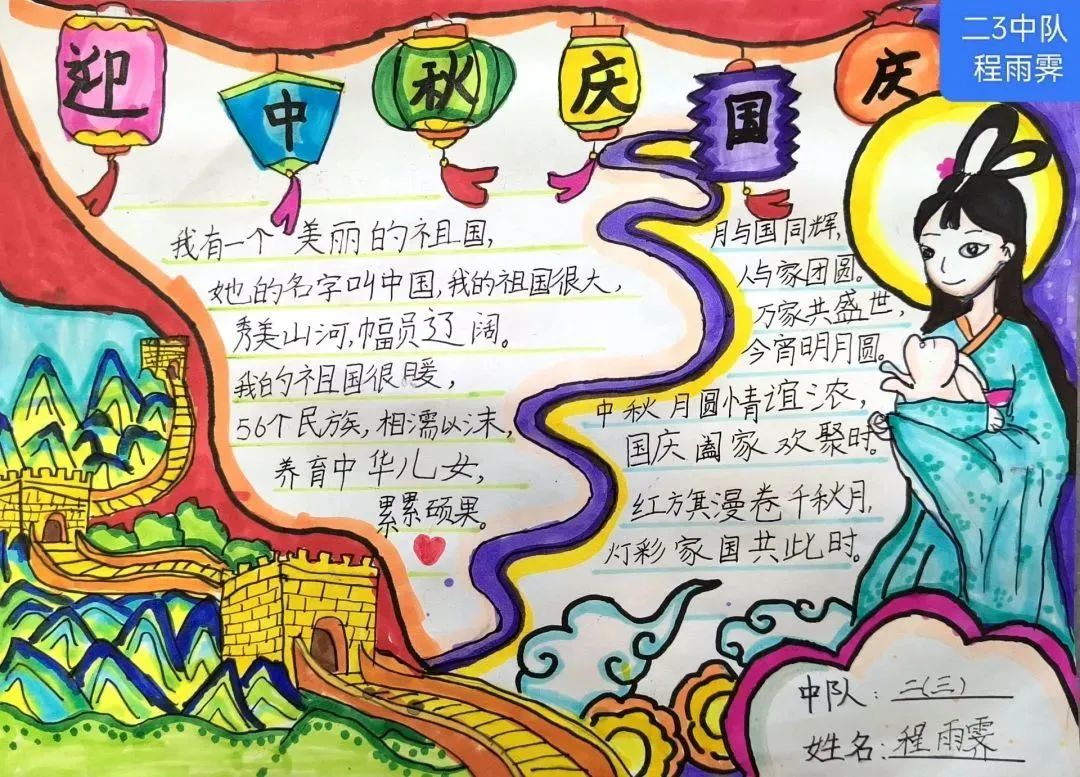 迎中秋庆国庆
二3中队
程雨霁
我有一个美丽的祖国,
她的名字叫中国,我的祖国很大,
秀美山河,幅员辽阔。
我的祖国很暖,
56个民族,相濡以沫,
养育中华儿女,
累累硕果。
月与国同辉,
人与家团圆。
万家共盛世,
今宵明月圆。
中秋月圆情谊浓,
国庆阖家欢聚时。
红旗漫卷千秋月,
灯彩家国共此时。
中队:二(三)
姓名:程雨霁